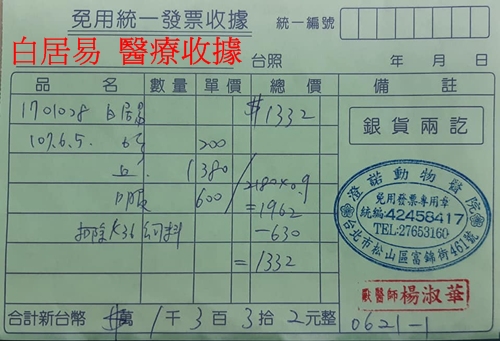 免用統一發票收據
統一編號
白居易 醫療收據
台照 年 月 日
品名 數量 單價 總價 備註
1701028 白居易 $1332
107.6.5. 200
1380
口服 600 2180×0.9
=1962
扣除K36飼料 -630
=1332
銀貨兩訖
澄諾動物醫院
免用發票專用章
統編:42458417
TEL:27653160
台北市松山區富錦街461號
獸醫師 楊淑華
合計新台幣 萬 1千3百3拾2元整
0621-1